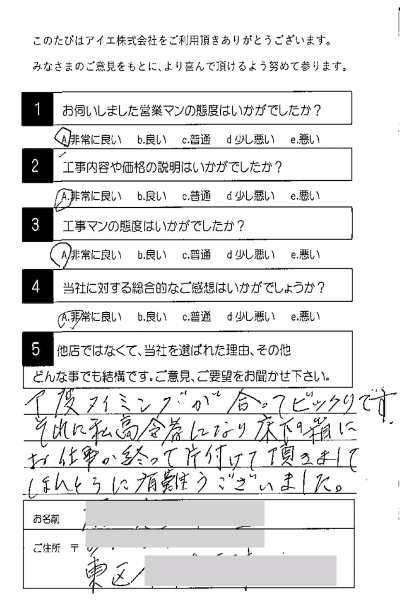 このたびはアイエ株式会社をご利用頂きありがとうございます。
みなさまのご意見をもとに、より喜んで頂けるよう努めて参ります。
1 お伺いしました営業マンの態度はいかがでしたか?
A.非常に良い b.良い c.普通 d少し悪い e.悪い
2 工事内容や価格の説明はいかがでしたか?
A.非常に良い b.良い c.普通 d少し悪い e.悪い
3 工事マンの態度はいかがでしたか?
A.非常に良い b.良い c.普通 d少し悪い e.悪い
4 当社に対する総合的なご感想はいかがでしょうか?
A.非常に良い b.良い c.普通 d少し悪い e.悪い
5 他店ではなくて、当社を選ばれた理由、その他
どんな事でも結構です。ご意見、ご要望をお聞かせ下さい。
丁度タイミングが合ってビックリです
それに私高令者になり床下の箱に
お仕事が終って片付けて頂きまして
ほんとうに有難うございました。
お名前
ご住所 〒
東区